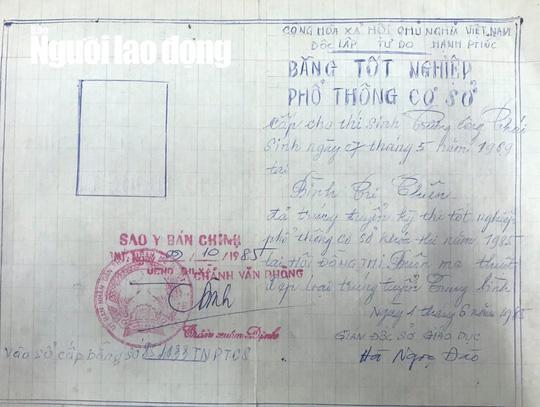 Báo
Người lao động
CỘNG HÒA XÃ HỘI CHỦ NGHĨA VIỆT NAM
ĐỘC LẬP TỰ DO HẠNH PHÚC
BẰNG TỐT NGHIỆP
PHỔ THÔNG CƠ SỞ
Cấp cho thí sinh Công Thái
Sinh ngày 07 tháng 5 năm 1969
tại
Bình Trị Thiên
đã trúng tuyển kỳ thi tốt nghiệp
phổ thông cơ sở khóa thi năm 1985
tại HỘI ĐỒNG THI Buôn ma thuột
xếp loại trúng tuyển Trung bình
Ngày 1 tháng 6 năm 1985
GIÁM ĐỐC SỞ GIÁO DỤC
Hồ Ngọc
SAO Y BẢN CHÍNH
10/1985
CHÁNH VĂN PHÒNG
Vào sổ cấp bằng số TNPTCS